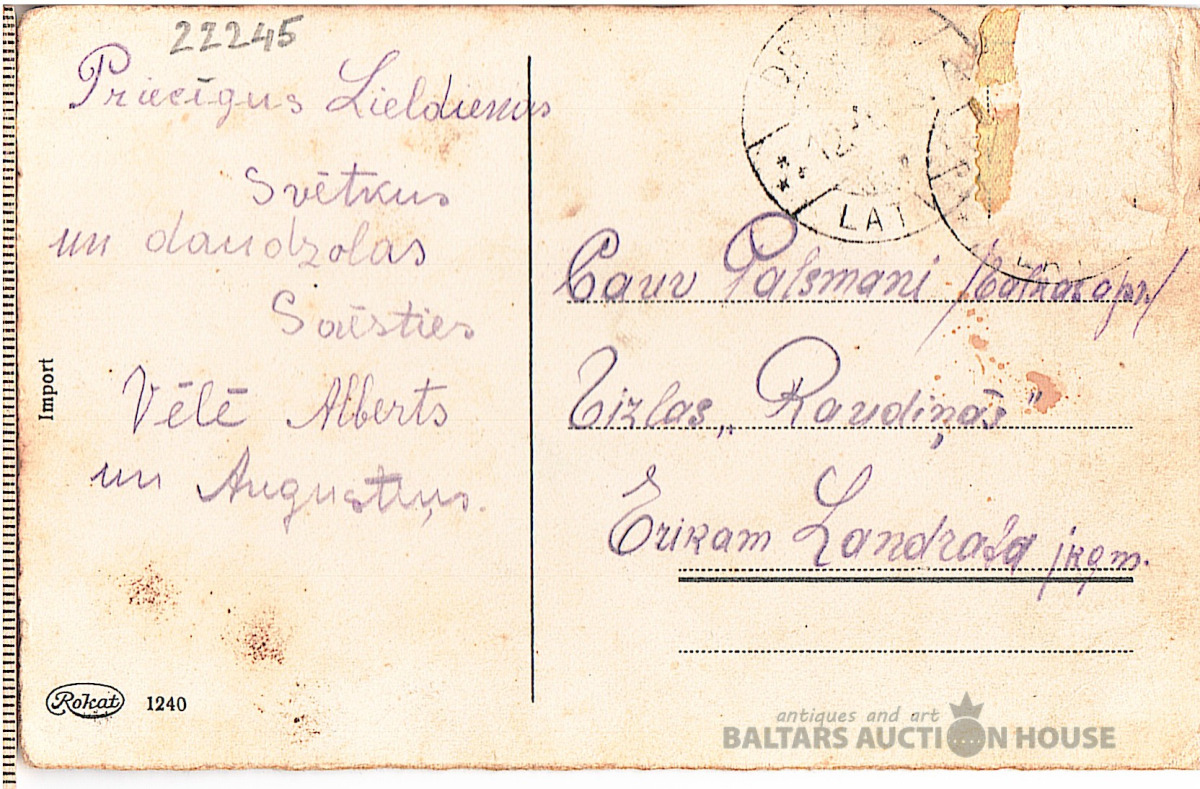 22245
Priecīgus Lieldienas
Svētkus
un daudzolas
Saēsties
Vēlē Alberts
un Augustiņs.
Import
Rokat 1240
LAT
Caur Palsmani /Valkas apr./
Vizlas „Raudiņās"
Erikam Landrata jkgm.
antiques and art
BALTARS AUCTION HOUSE